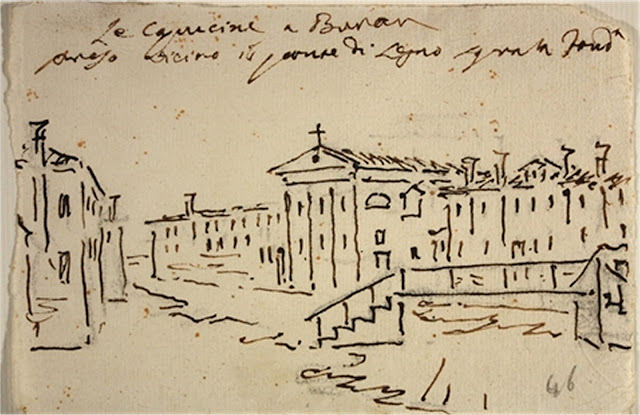 Le Capucine a Buran
preso vicino il ponte di Legno
46